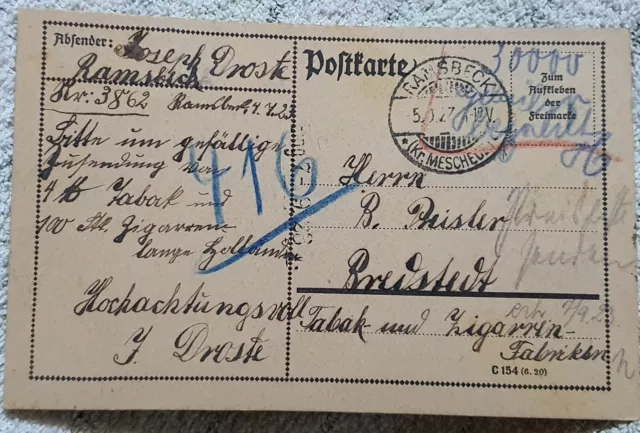 Absender: Joseph Droste
Ramsbeck
Nr. 3862 Ramsbeck, 4.9.23
Bitte um gefällige
Zusendung von
4 ℔ Tabak und
100 Stk. Zigarren
lange Holland
Hochachtungsvoll
J. Droste
416
Postkarte
RAMSBECK
(Kr. MESCHEDE)
30000
Zum
Aufkleben
der
Freimarke
Herrn
B. Preisler
Bredstedt
Tabak und Zigarren-
Fabriken
Preisliste
senden
7/9.23
C 154 (6. 20)